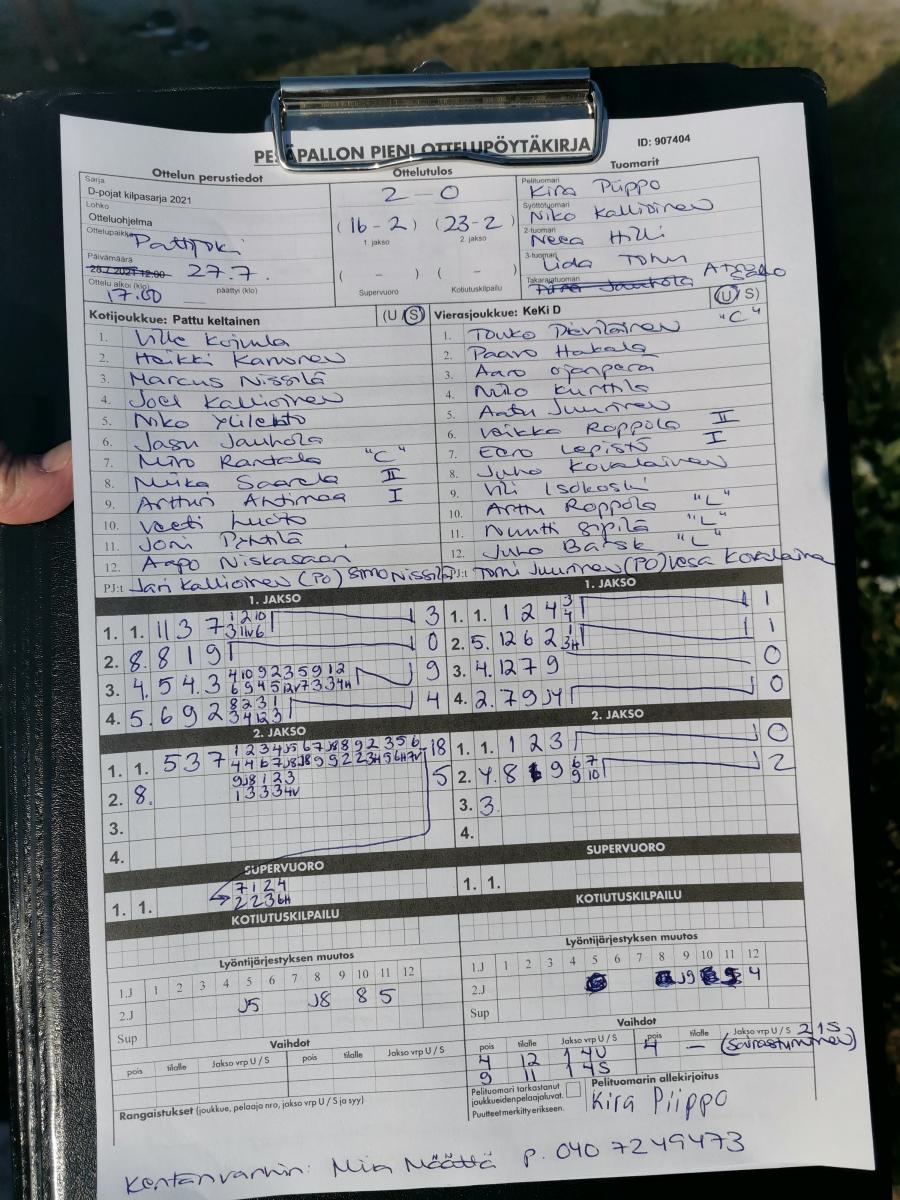 PESÄPALLON PIENI OTTELUPÖYTÄKIRJA ID: 907404
Ottelun perustiedot Ottelutulos Tuomarit
Sarja
D-pojat kilpasarja 2021
Lohko
Otteluohjelma
Ottelupaikka Pattijoki
Päivämäärä
27.7.
Ottelu alkoi (klo) 17.00 päättyi (klo)
2 - 0
(16 - 2) (23 - 2)
1. jakso 2. jakso
( - ) ( - )
Supervuoro Kotiutuskilpailu
Pelituomari Kira Piippo
Syöttötuomari Niko Kallioinen
2-tuomari Neea Hilli
3-tuomari Iida
Takarajatuomari
Kotijoukkue: Pattu keltainen (U S)
1. Ville Kojula
2. Heikki Kanonen
3. Marcus Nissilä
4. Joel Kallioinen
5. Niko Ylilehto
6. Jasu Jauhola
7. Miro Rantala "C"
8. Miika Saarela II
9. Artturi Ahtimaa I
10. Veeti
11. Joni Pihtilä
12. Aapo Niskasaari
PJ:t Jari Kallioinen (PO) Simo Nissilä
Vierasjoukkue: KeKi D (U S)
1. Touko Pörilainen "C"
2. Paavo Hakala
3. Aaro Ojanperä
4. Niilo Kurttila
5. Aatu Juurinen
6. Veikka Roppola II
7. Eero Lepistö I
8. Juho Kovalainen
9. Vili Isokoski
10. Arttu Roppola "L"
11. Nuutti Sipilä "L"
12. Juho Barsk "L"
PJ:t Tomi Juurinen (PO) Vesa Kovalainen
1. JAKSO 1. JAKSO
1. 1. 11 3 7 3
2. 8. 8 1 9 0
3. 4. 5 4. 3 4 10 9 2 3 5 9 12 9
4. 5. 6 9 2 8 2 3 1 4
1. 1. 1 2 4 1
2. 5. 12 6 2 1
3. 4. 12 7 9 0
4. 2. 7 9 J4 0
2. JAKSO 2. JAKSO
1. 1. 5 3 7 1 2 3 4 J5 6 7 J8 8 9 2 3 5 6 18
2. 8. 9 J8 1 2 3 5
1 3 3 3 4V
3.
4.
1. 1. 1 2 3 0
2. 4. 8 9 6 7 2
9 10
3. 3.
4.
SUPERVUORO SUPERVUORO
1. 1. 7 1 2 4
2 2 3 6H
1. 1.
KOTIUTUSKILPAILU KOTIUTUSKILPAILU
Lyöntijärjestyksen muutos
1.J 1 2 3 4 5 6 7 8 9 10 11 12
2.J J5 J8 8 5
Sup
Lyöntijärjestyksen muutos
1.J 1 2 3 4 5 6 7 8 9 10 11 12
2.J J9 4
Sup
Vaihdot
pois tilalle Jakso vrp U / S pois tilalle Jakso vrp U / S
Vaihdot
pois tilalle Jakso vrp U / S pois tilalle Jakso vrp U / S
4 12 1 4U 4 - 2 1S (Sairastuminen)
9 11 1 4S
Rangaistukset (joukkue, pelaaja nro, jakso vrp U / S ja syy)
Pelituomari tarkastanut
joukkueiden pelaajaluvat.
Puutteet merkitty erikseen.
Pelituomarin allekirjoitus
Kira Piippo
Kentänvanhin: Miia Määttä p. 040 7249473